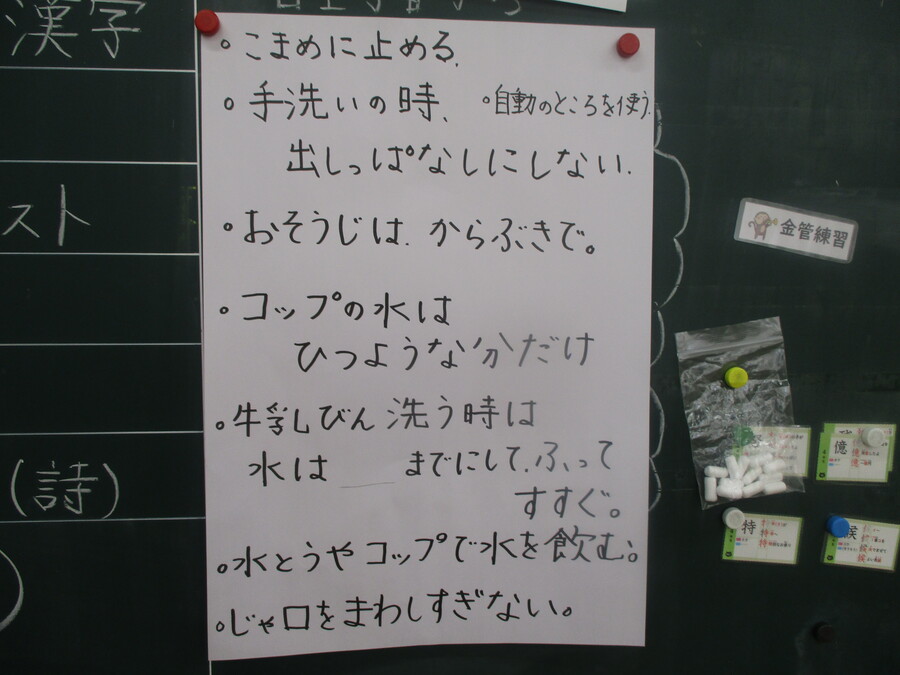 漢字
スト
(詩)
。こまめに止める.
。手洗いの時、 。自動のところを使う.
出しっぱなしにしない.
。おそうじは. からぶきで。
。コップの水は
ひつような分だけ
。牛乳びん 洗う時は
水は ___ までにして、ふって
すすぐ。
。水とうやコップで水を飲む。
。じゃ口をまわしすぎない。
金管練習
億
特
候